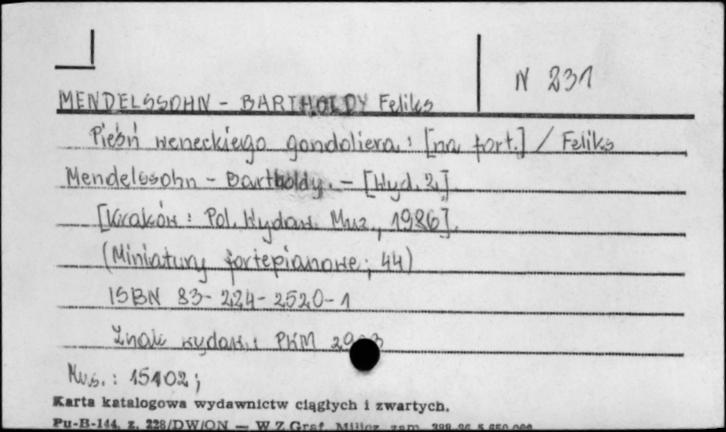 N 231
MENDELSSOHN - BARTHOLDY Feliks
Pieśń weneckiego gondoliera : [na fort.] / Feliks
Mendelssohn - Bartholdy. - [Wyd. 2].
[Kraków : Pol. Wydaw. Muz., 1986].
(Miniatury fortepianowe ; 44)
ISBN 83-224-2520-1
Znak wydaw.: PWM
Mus. : 15102 ;
Karta katalogowa wydawnictw ciągłych i zwartych.
Pu-B-144, z. 228/DW/ON — W.Z.Graf. Milicz, zam.